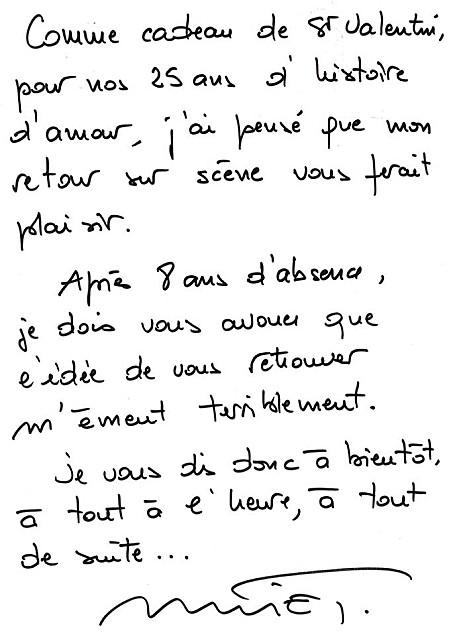 Comme cadeau de St Valentin,
pour nos 25 ans d'histoire
d'amour, j'ai pensé que mon
retour sur scène vous ferait
plaisir.
Après 8 ans d'absence,
je dois vous avouer que
l'idée de vous retrouver
m'émeut terriblement.
Je vous dis donc à bientôt,
à tout à l'heure, à tout
de suite...